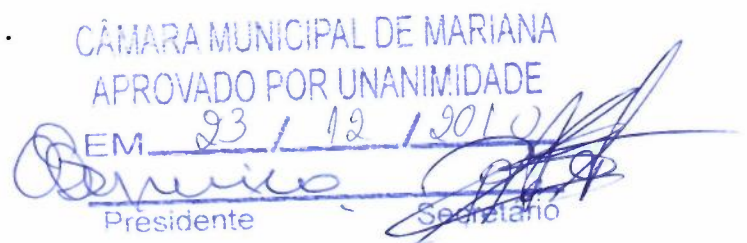 CÂMARA MUNICIPAL DE MARIANA
APROVADO POR UNANIMIDADE
EM 23 / 12 /
Presidente Secretário